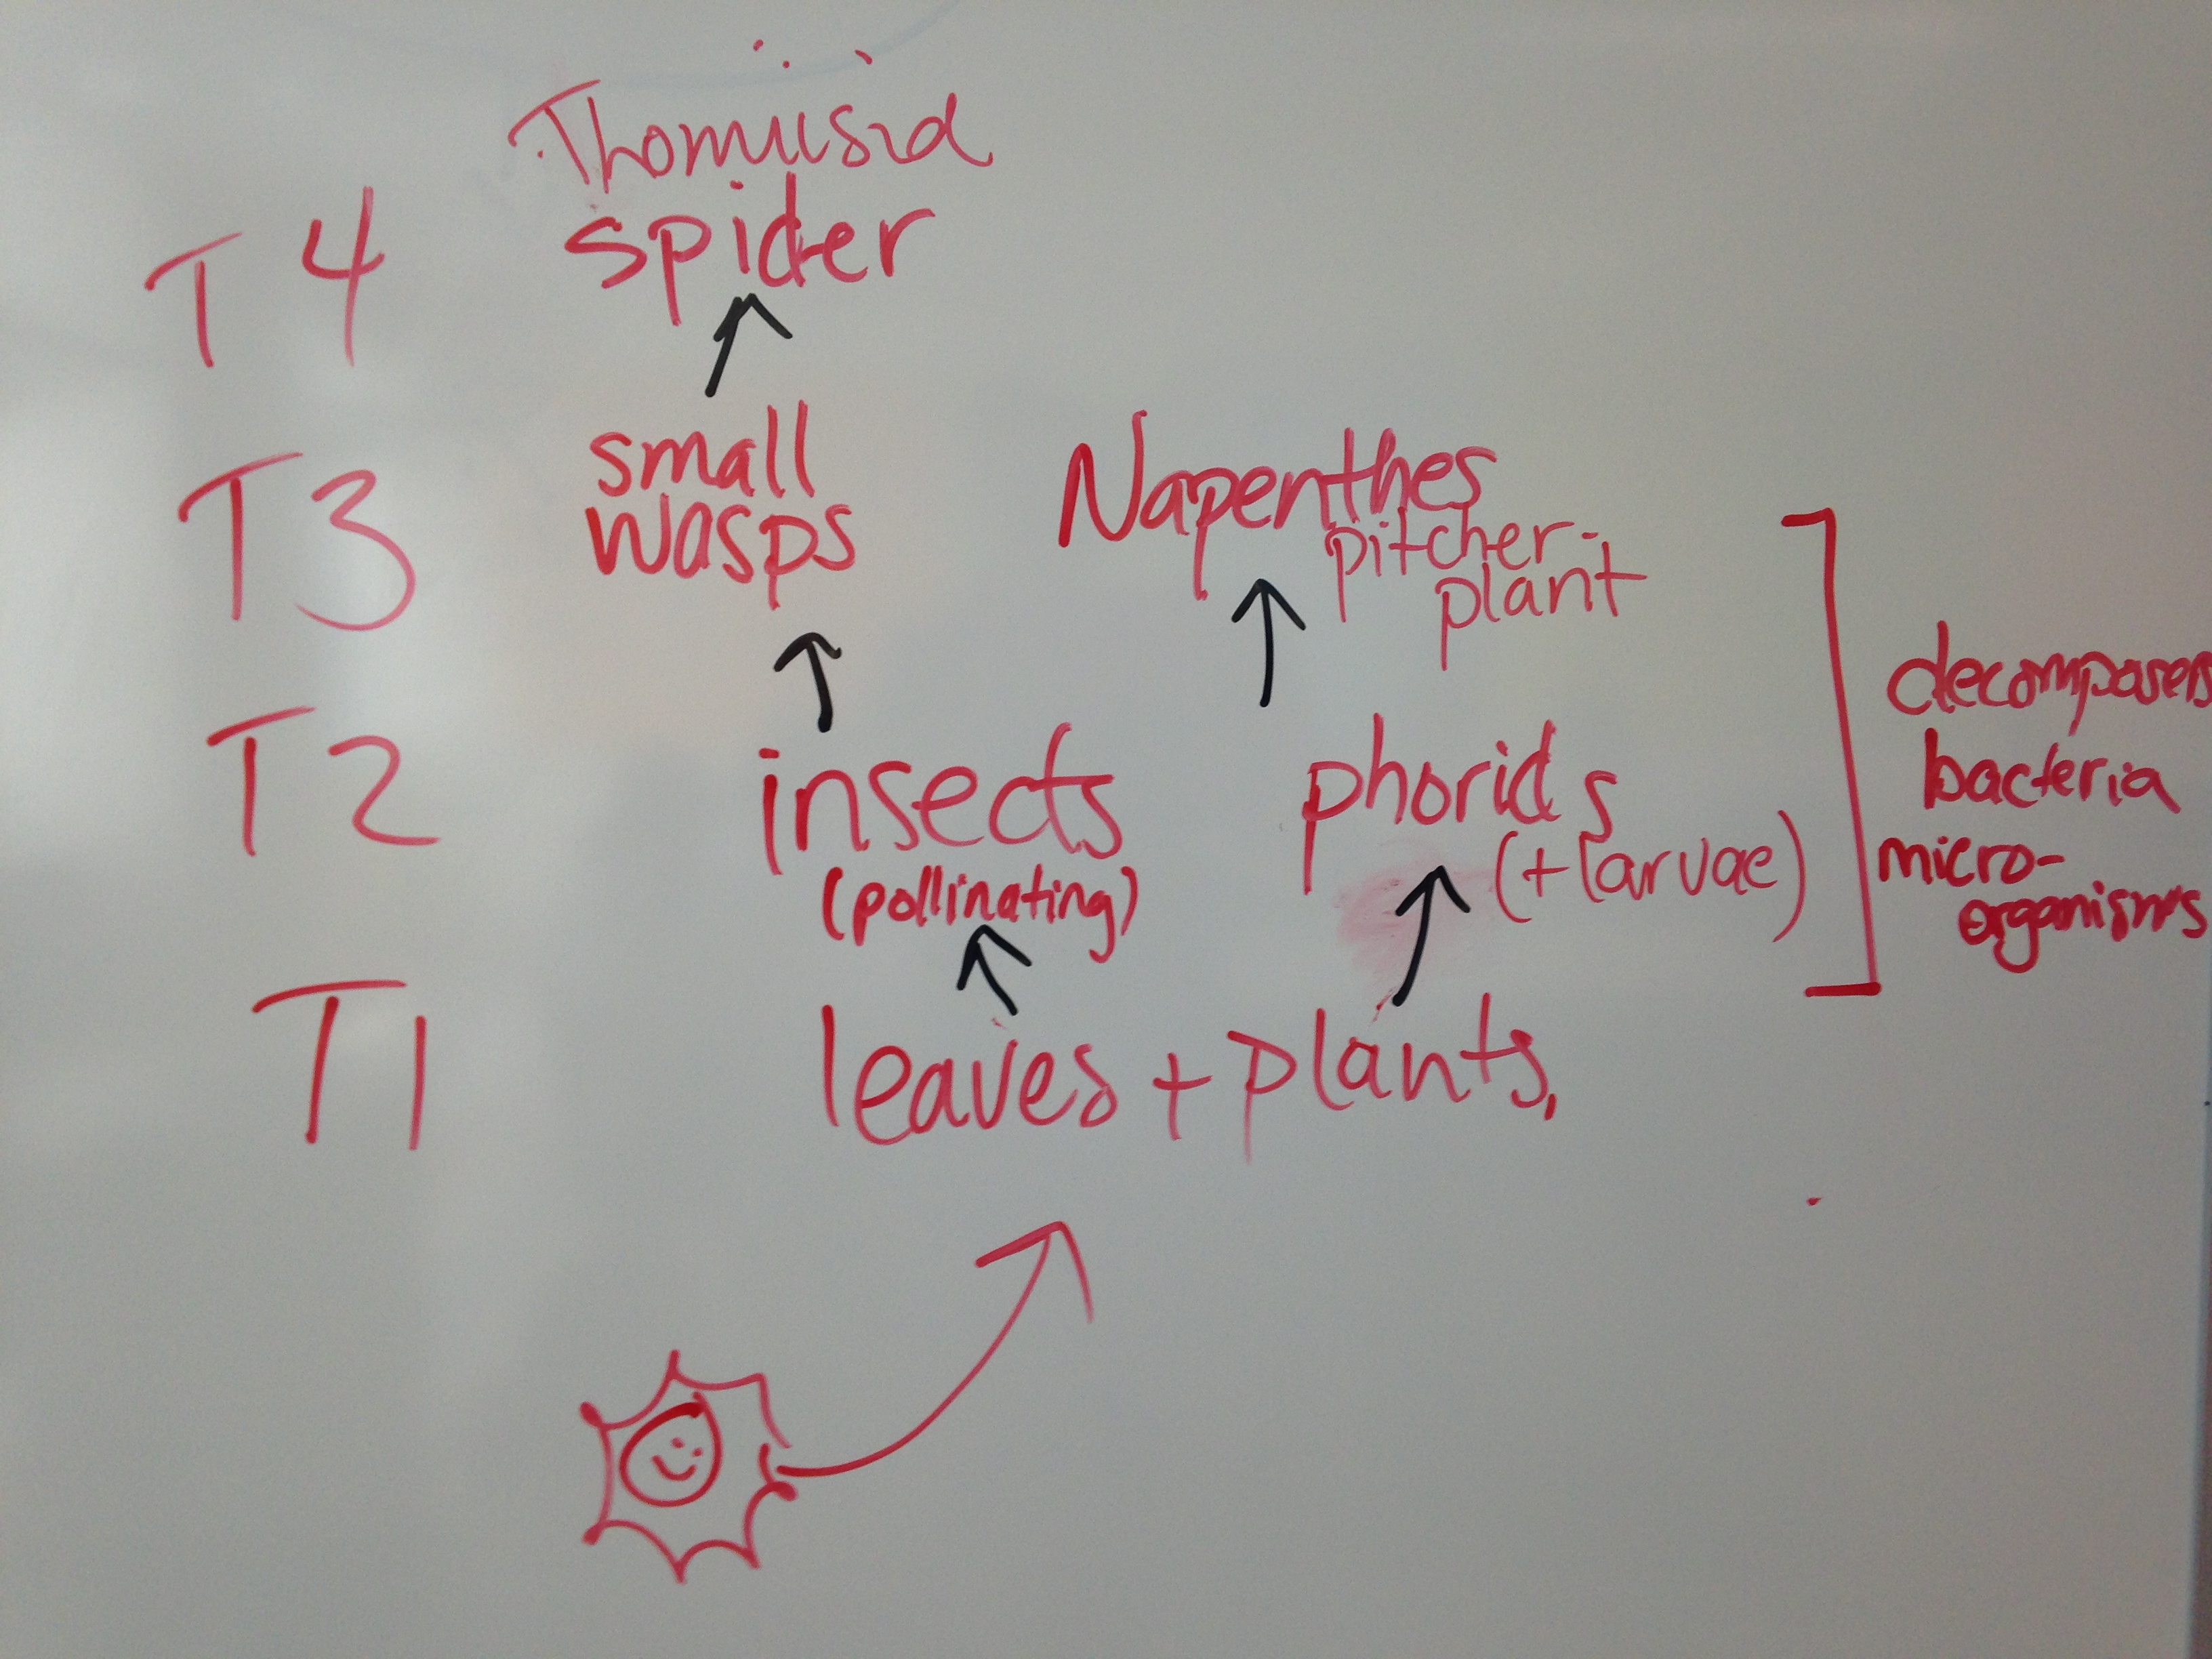 Thomiisid
T4 spider
small
T3 wasps
Napenthes
pitcher-
plant
T2 insects
(pollinating)
phorids
(+ larvae)
decomposers
bacteria
micro-
organisms
T1 leaves + plants,